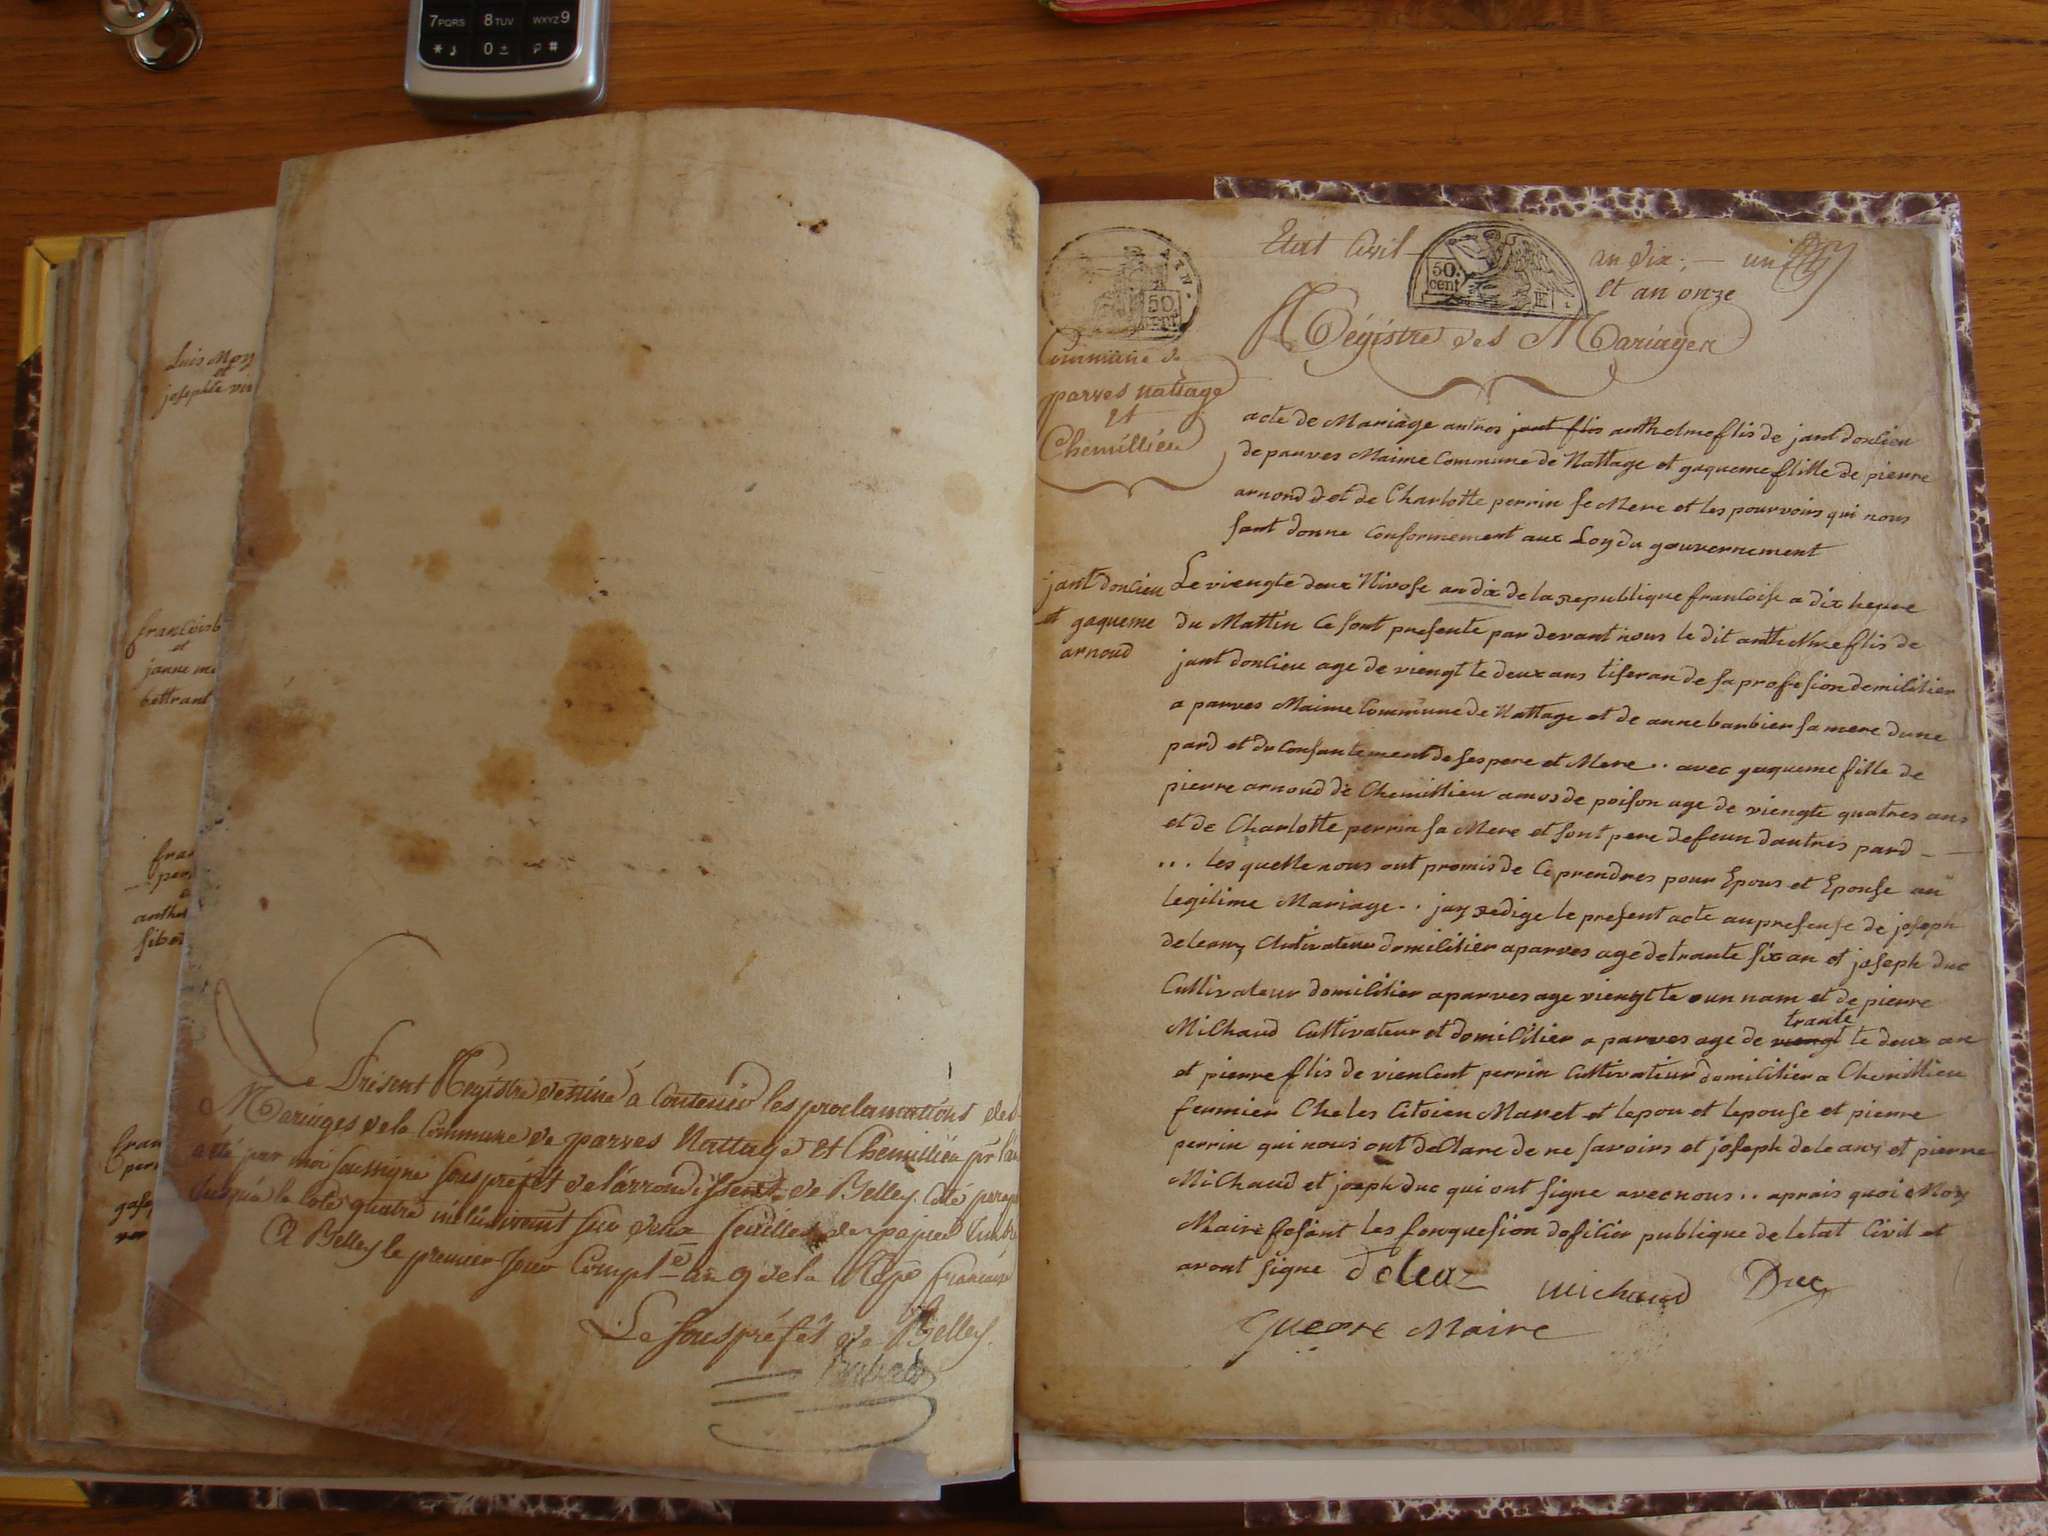 7PQRS 8TUV WXYZ9
* 0 #
Luis Moy
et
josephte vin
francois b
et
janne ma
bettrant
fran
per
anthe
fran
per
Le Présent Registre destiné à Contenir les proclamations des
Mariages de la Commune de parves Nattage et Chemillieu pr l'an
été par moi soussigné sous préfet de l'arrondissemt de Belley. Coté parap
jusqu'à la cote quatre inclusivement sur deux feuilles de papier timbré
A Belley le premier Jour Complre an 9 de la Repe française
Le sous préfet de Belley.
Etat Civil
50 cent
50. cent
an dix; — un
et an onze
Régistre des Mariages
Commune de
parves nattage
et
Chemillieu
acte de Mariage antres jant flis anthelme flis de jant donlieu
de parves Maime Commune de Nattage et gaqueme flille de pierre
arnond d et de Charlotte perrin se Mere et les pourvoirs qui nous
sont donne Conformement aux Loy du gouvernement
jant donlieu
et gaqueme
arnoud
Le viengte deux Nivose an dix de la republique francoise a dix heure
du Mattin Ce sont presente par devant nous le dit anthelme flis de
jant donlieu age de viengt te deux ans tiseran de sa profesion demilisier
a parves Maime Commune de Nattage et de anne barbier sa mere dune
pard et du Consantement de ses pere et Mere .. avec gaqueme fille de
pierre arnoud de Chemillieu amos de poison age de viengte quatres ans
et de Charlotte perrin sa Mere et sont pere defeun dautres pard - -
... les quelle nous ont promis de Ce prendres pour Epous et Epouse an
legitime Mariage .. jay redige le present acte au presense de joseph
deleanz Cultivateur domilisier a parves age de trante six an et joseph duc
Cultivateur domilisier a parves age viengt te oun nam et de pierre
Michaud Cultivateur et domilisier a parves age de viengt trante te deux an
et pierre flis de vienCent perrin Cultivatieur domilisier a Chemillieu
fermier Che les Citoien Maret et lepou et lepouse et pierre
perrin qui nous ont de Clare de ne savoirs et joseph deleanz et pierre
Michaud et joseph duc qui ont signe avec nous .. aprais quoi Moy
Maire fesant les fonquesion dofisier publique de letat Civil et
avont signe deleaz michaud Duc
guerre Maire